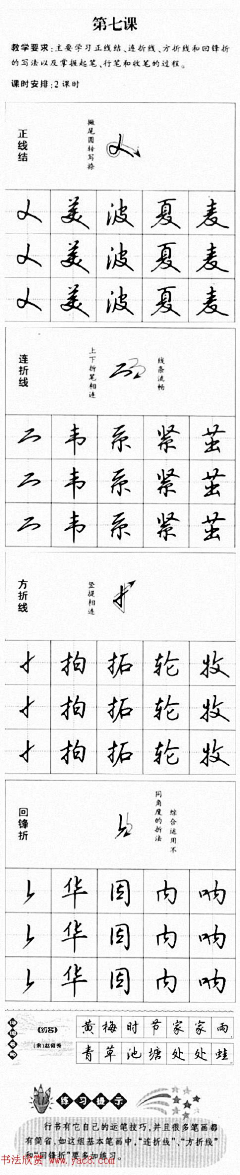 第七课
教学要求:主要学习正线结、连折线、方折线和回锋折
的写法以及掌握起笔、行笔和收笔的过程。
课时安排:2课时
正线结
撇尾圆转写捺
美 波 夏 麦
美 波 夏 麦
美 波 夏 麦
连折线
上下折笔相连
线条流畅
韦 系 紧 茧
韦 系 紧 茧
韦 系 紧 茧
方折线
竖提相连
拍 拓 轮 牧
拍 拓 轮 牧
拍 拓 轮 牧
回锋折
综合运用不
同角度的折法
华 固 内 呐
华 固 内 呐
华 固 内 呐
《约客》
(宋)赵师秀
黄梅时节家家雨
青草池塘处处蛙
练习提示
行书有它自己的运笔技巧,并且很多笔画都
有简省,如这组基本笔画中,“连折线”、“方折线”
和“回锋折”要多加练习。
书法欣赏 www.yac8.com